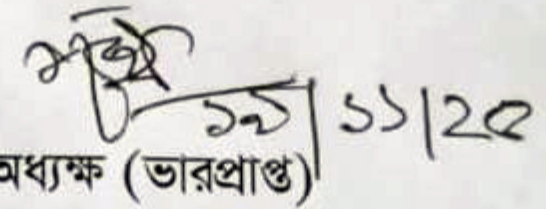 ১৯|১১|২৫
অধ্যক্ষ (ভারপ্রাপ্ত)